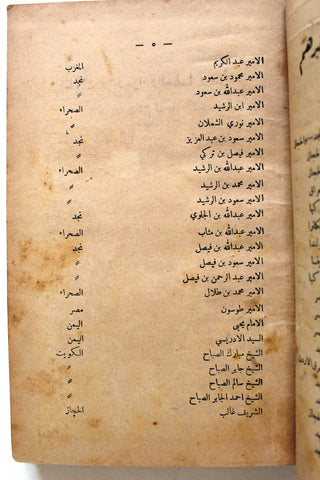 — ٥ —
الامير عبد الكريم المغرب
الامير محمود بن سعود نجد
الامير عبدالله بن سعود »
الامير ابن الرشيد الصحراء
الامير نوري الشعلان »
الامير سعود بن عبد العزيز نجد
الامير فيصل بن تركي »
الامير عبدالله بن الرشيد الصحراء
الامير محمد بن الرشيد »
الامير سعود بن الرشيد »
الامير عبدالله بن الجلوي نجد
الامير عبدالله بن متاب الصحراء
الامير عبدالله بن فيصل نجد
الامير سعود بن فيصل »
الامير عبد الرحمن بن فيصل »
الامير محمد بن طلال الصحراء
الامير طوسون مصر
الامام يحيى اليمن
السيد الادريسي اليمن
الشيخ مبارك الصباح الكويت
الشيخ جابر الصباح »
الشيخ سالم الصباح »
الشيخ احمد الجابر الصباح »
الشريف غالب الحجاز